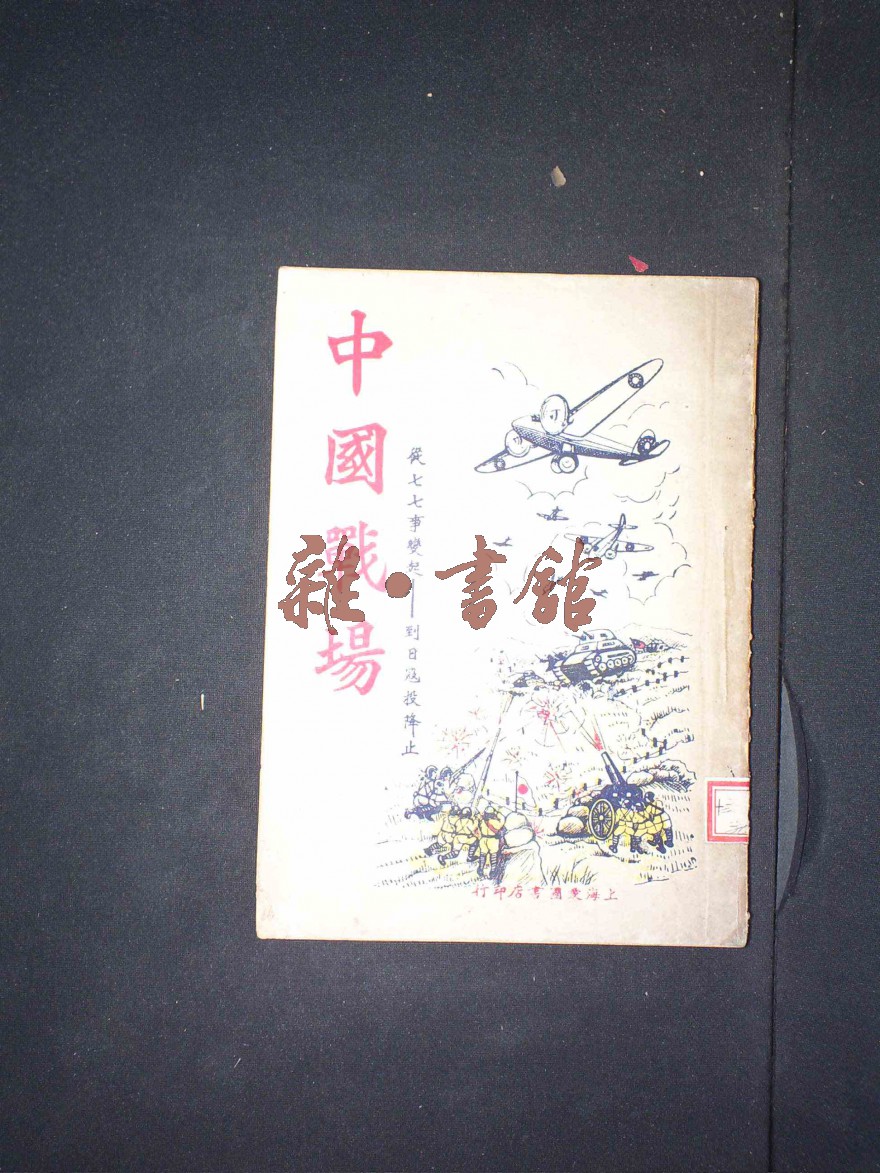 中國戰場
從七七事變起——到日寇投降止
雜·書館
上海愛國書店印行